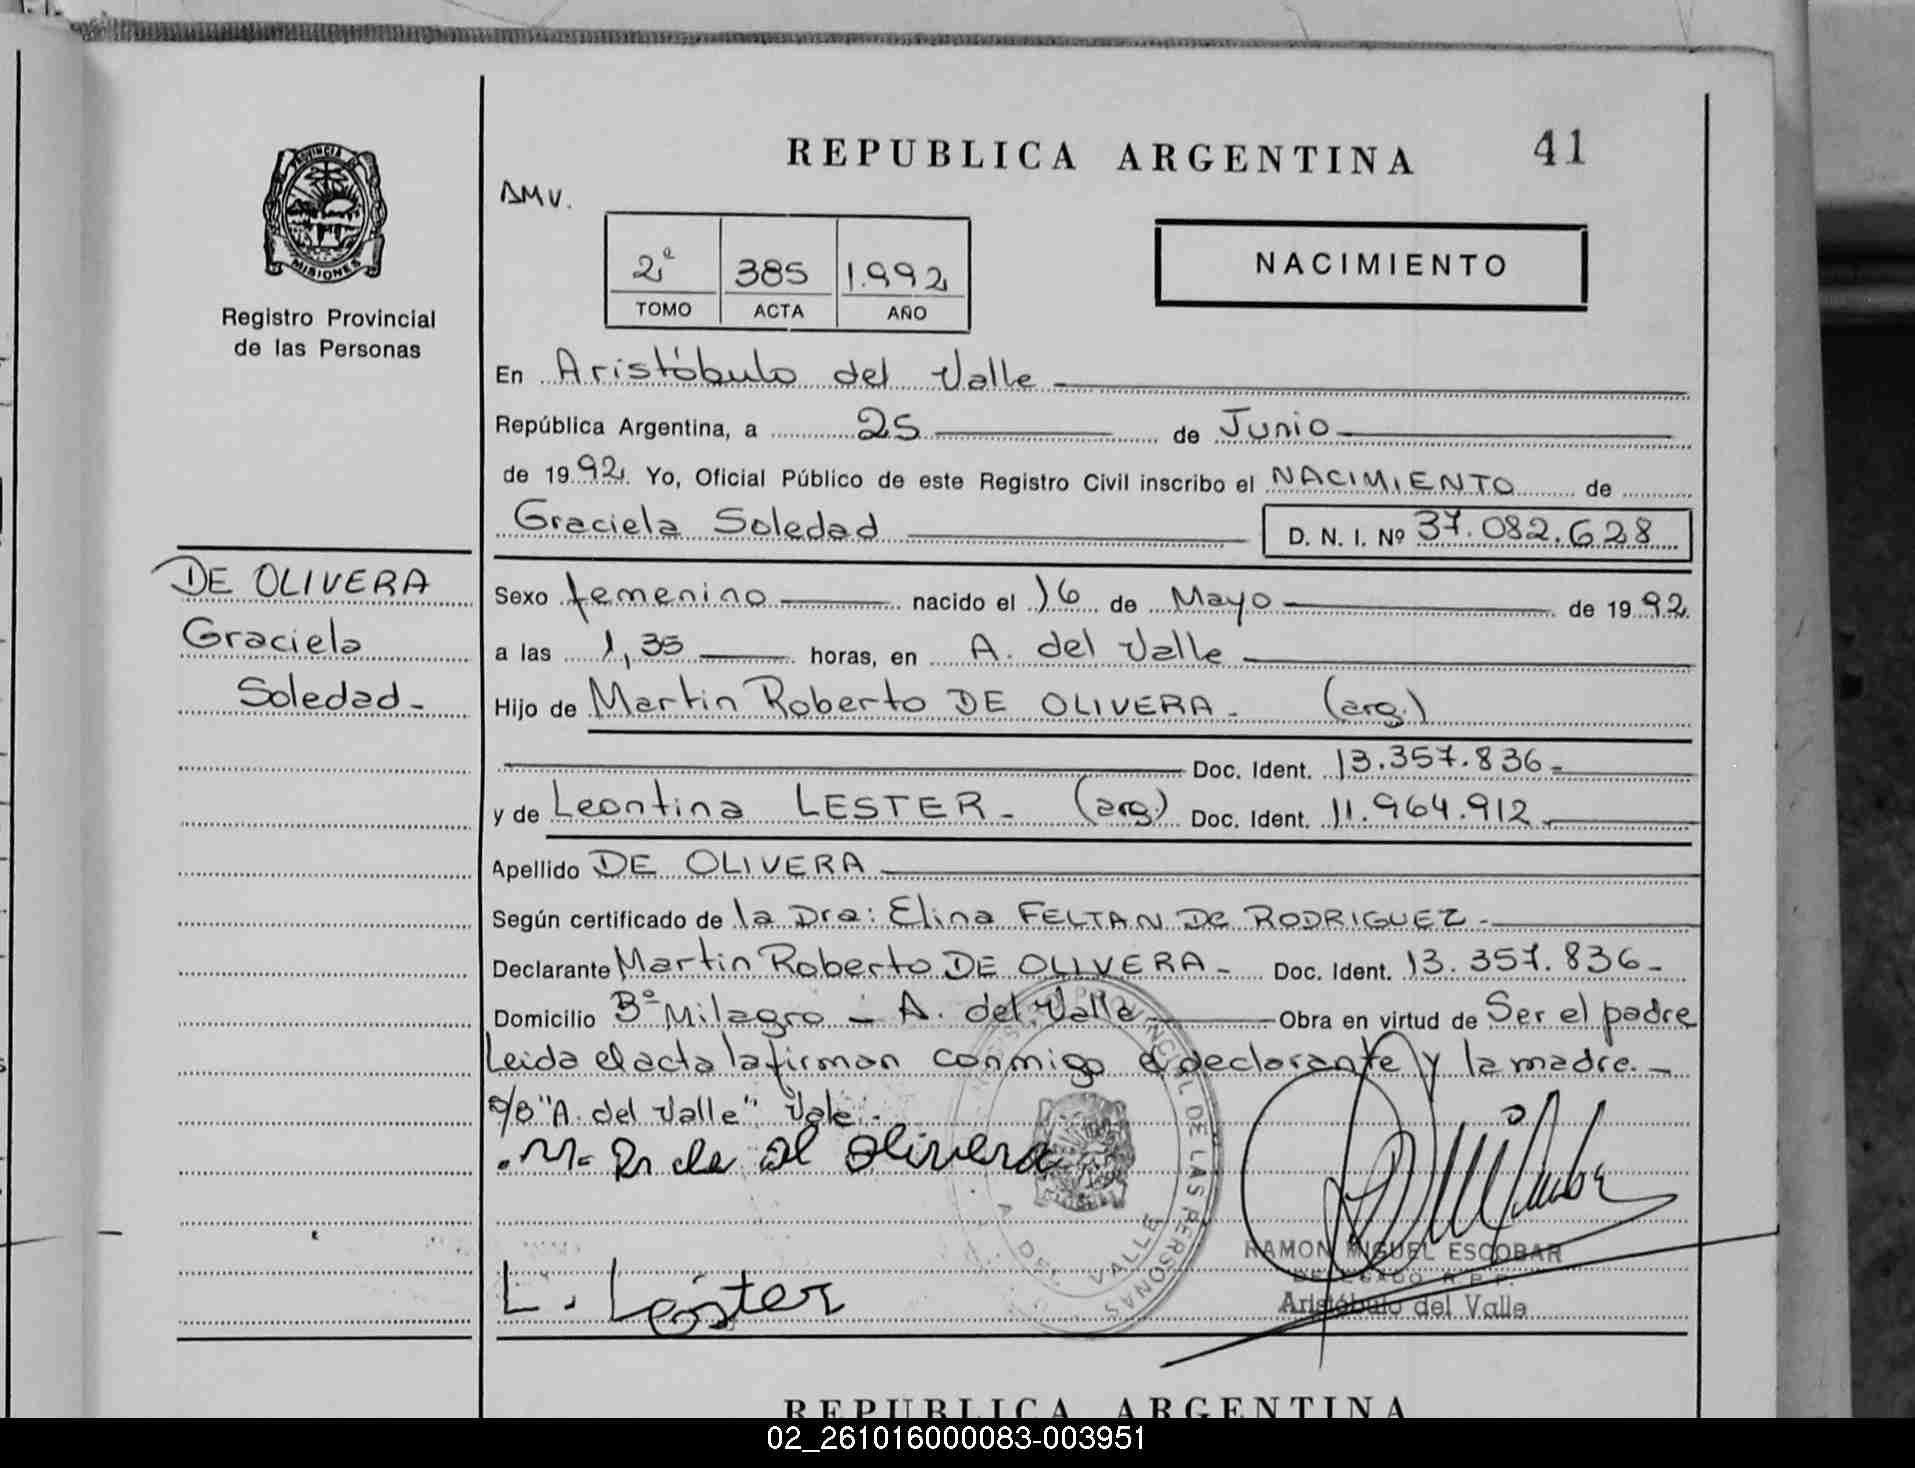 REPUBLICA ARGENTINA
41
PROVINCIA DE
MISIONES
Registro Provincial
de las Personas
DE OLIVERA
Graciela
Soledad-
2º 385 1.992
TOMO ACTA AÑO
NACIMIENTO
En Aristóbulo del Valle
República Argentina, a 25 de Junio
de 1992 Yo, Oficial Público de este Registro Civil inscribo el NACIMIENTO de
Graciela Soledad D. N. I. Nº 37.082.628
Sexo femenino nacido el 16 de Mayo de 1992
a las 1,35 horas, en A. del Valle
Hijo de Martin Roberto DE OLIVERA- (arg.)
Doc. Ident. 13.357.836-
y de Leontina LESTER- (arg.) Doc. Ident. 11.964.912
Apellido DE OLIVERA
Según certificado de la Dra: Elina FELTAN De RODRIGUEZ-
Declarante Martin Roberto DE OLIVERA- Doc. Ident. 13.357.836-
Domicilio Bº Milagro - A. del Valle Obra en virtud de Ser el padre
Leida el acta la firman conmigo el declarante y la madre.-
"A. del Valle" Vale-
Olivera
L. Lester
PROVINCIAL DE LAS PERSONAS
A. DEL VALLE
RAMON MIGUEL ESCOBAR
DELEGADO R.P.P.
Aristóbulo del Valle
REPUBLICA ARGENTINA
02_261016000083-003951